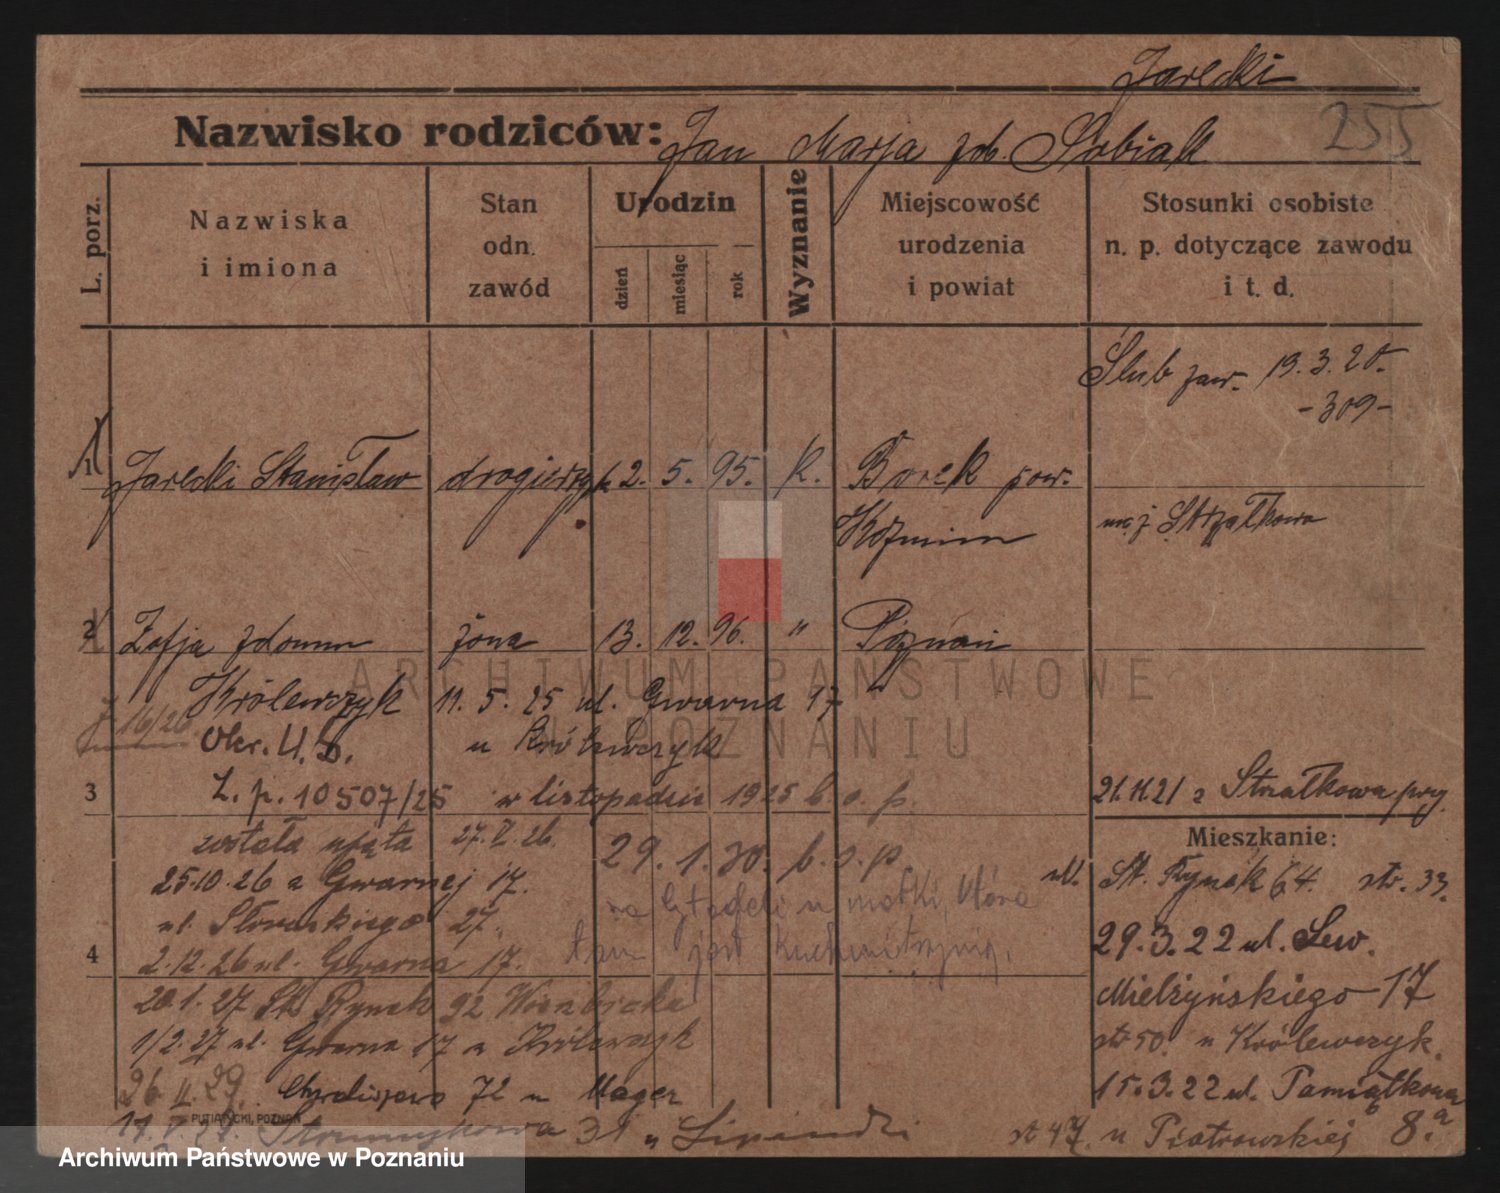 Jarecki
Nazwisko rodziców: Jan Marja zdr. Sobiak
255
L. porz.
Nazwiska
i imiona
Stan
odn.
zawód
Urodzin
dzień
miesiąc
rok
Wyznanie
Miejscowość
urodzenia
i powiat
Stosunki osobiste
n. p. dotyczące zawodu
i t. d.
Ślub zaw. 19.3.20.
-309-
1 Jarecki Stanisław drogierzysta 2. 5. 95. k. Borek pow.
Koźmin
mąż Strzałkowo
2 Zofja z domu żona 13. 12. 96. " Poznań
Królewczyk 11. 5. 25 ul. Gwarna 17
16/26 u Królewczyk
L. p. 10507/25 w listopadzie 1925 b. o. p.
3
21.11.21 z Strzałkowa
Mieszkanie:
została ujęta 27. 26. 29. 1. 30. b. o. p.
St. Rynek 64. str. 33.
25.10.26 z Gwarnej 17.
ul. Słowackiego 27.
u matki, która
29.3.22 ul. Sew.
4
2.12.26 ul. Gwarna 17.
jest
Mielżyńskiego 17
20.1.27 St. Rynek 92
str 50. u Królewczyk.
1/2.27 ul. Gwarna 17 u Królewczyk
15.3.22 ul. Pamiątkowa
26. II. 29. 72 u Mager
PUTIATYCKI, POZNAŃ
Strumykowa 31 u
st 47. u Piotrowskiej 8.a
ARCHIWUM PAŃSTWOWE
W POZNANIU
Archiwum Państwowe w Poznaniu